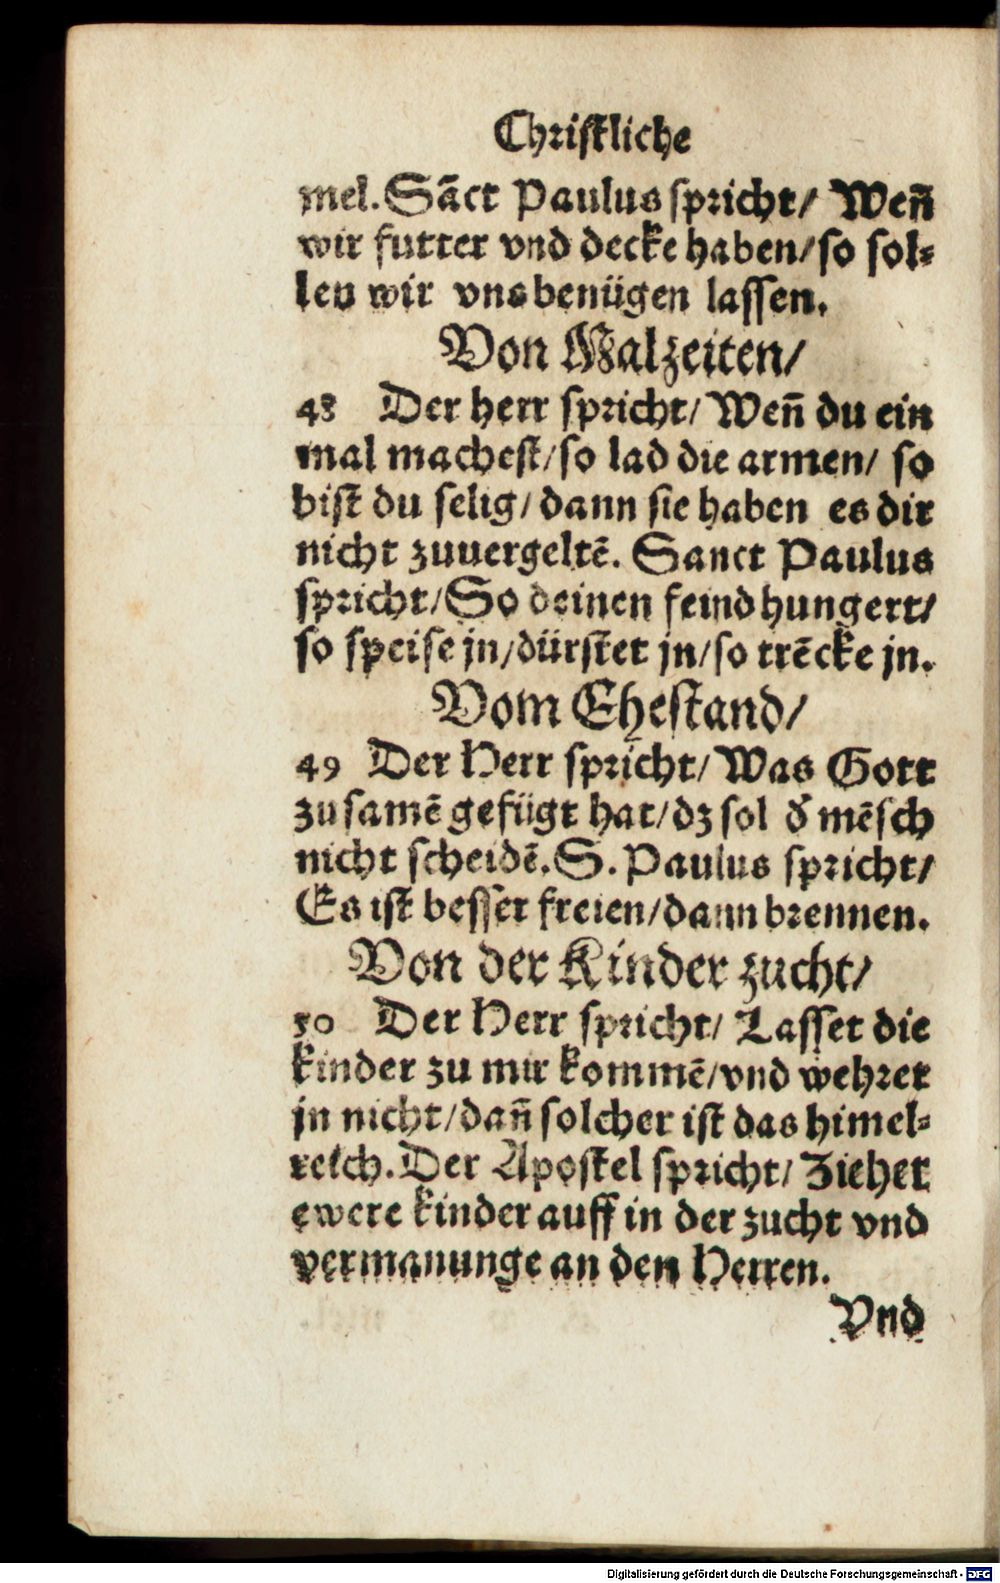 Christliche
mel. Sãct Paulus spricht/ Weñ
wir futter vnd decke haben/so sol-
len wir vns benügen lassen.
Von Malzeiten/
48 Der herr spricht/ Weñ du ein
mal machest/so lad die armen/ so
bist du selig/ dann sie haben es dir
nicht zuuergeltẽ. Sanct Paulus
spricht/ So deinen feind hungert/
so speise jn/dürstet jn/so trẽcke jn.
Vom Ehestand/
49 Der Herr spricht/ Was Gott
zusamẽ gefügt hat/dz sol đ mẽsch
nicht scheidẽ. S. Paulus spricht/
Es ist besser freien/dann brennen.
Von der Kinder zucht/
50 Der Herr spricht/ Lasset die
kinder zu mir kommẽ/vnd wehret
jn nicht/dañ solcher ist das himel-
reich. Der Apostel spricht/ Ziehet
ewere kinder auff in der zucht vnd
vermanunge an den Herren.
Vnd
Digitalisierung gefördert durch die Deutsche Forschungsgemeinschaft - DFG